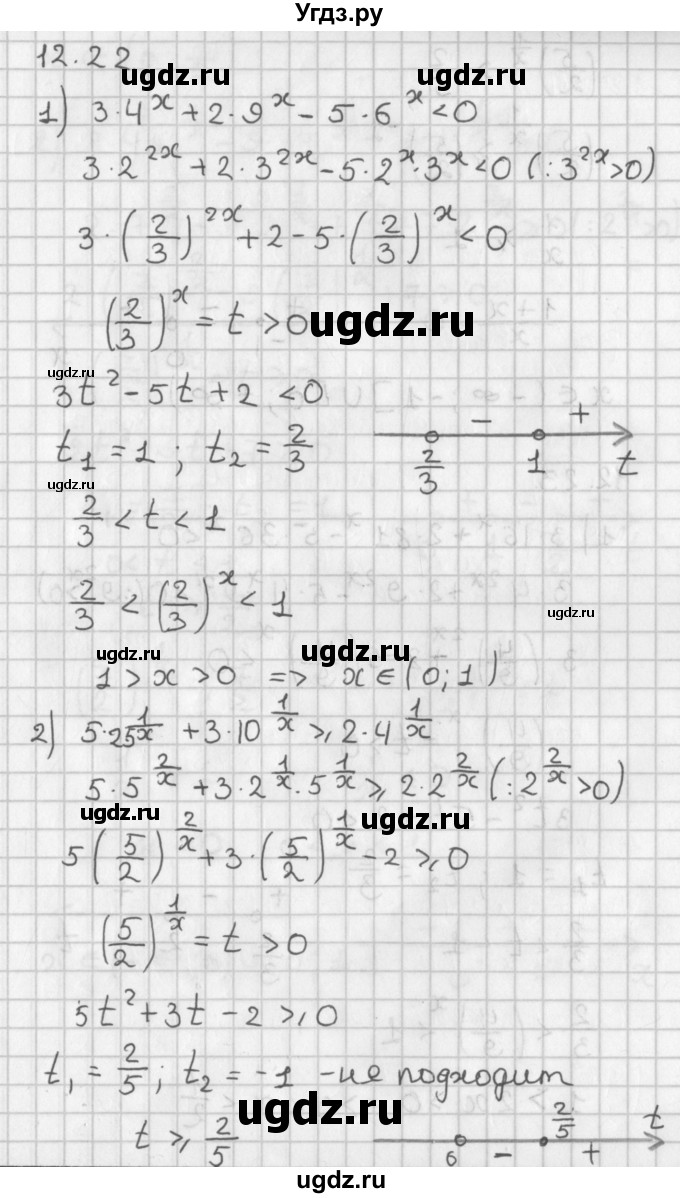 Угдз.ру
12.22
ugdz.ru
1) 3·4^x + 2·9^x - 5·6^x < 0
3·2^(2x) + 2·3^(2x) - 5·2^x·3^x < 0 (:3^(2x) > 0)
3·(2/3)^(2x) + 2 - 5·(2/3)^x < 0
(2/3)^x = t > 0
ugdz.ru
ugdz.ru
3t² - 5t + 2 < 0
t₁ = 1 ; t₂ = 2/3
- +
2/3 1 t
ugdz.ru
2/3 < t < 1
2/3 < (2/3)^x < 1
ugdz.ru
ugdz.ru ugdz.ru
1 > x > 0 => x ∈ (0; 1)
2) 5·25^(1/x) + 3·10^(1/x) ⩾ 2·4^(1/x)
5·5^(2/x) + 3·2^(1/x)·5^(1/x) ⩾ 2·2^(2/x) (:2^(2/x) > 0)
ugdz.ru ugdz.ru
5(5/2)^(2/x) + 3·(5/2)^(1/x) - 2 ⩾ 0
(5/2)^(1/x) = t > 0
5t² + 3t - 2 ⩾ 0
t₁ = 2/5 ; t₂ = -1 - не подходит
ugdz.ru
t ⩾ 2/5
2/5 t
6 - +
ugdz.ru